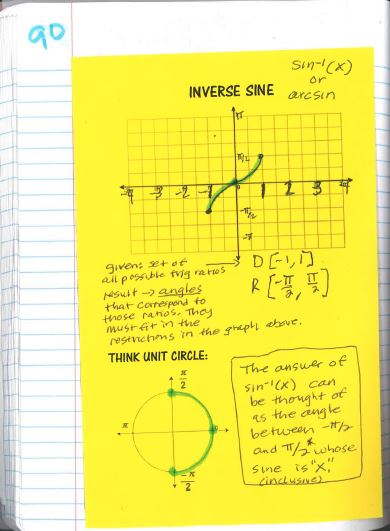 90
sin⁻¹(x)
or
arcsin
INVERSE SINE
π
π/2
-4 -3 -2 -1 0 1 2 3 4
-π/2
-π
given: set of
all possible trig ratios
result → angles
that correspond to
those ratios. They
must fit in the
restrictions in the graph above.
D [-1, 1]
R [-π/2, π/2]
THINK UNIT CIRCLE:
π/2
π
0
-π/2
The answer of
sin⁻¹(x) can
be thought of
as the angle
between -π/2
and π/2* whose
sine is "x."
(inclusive)